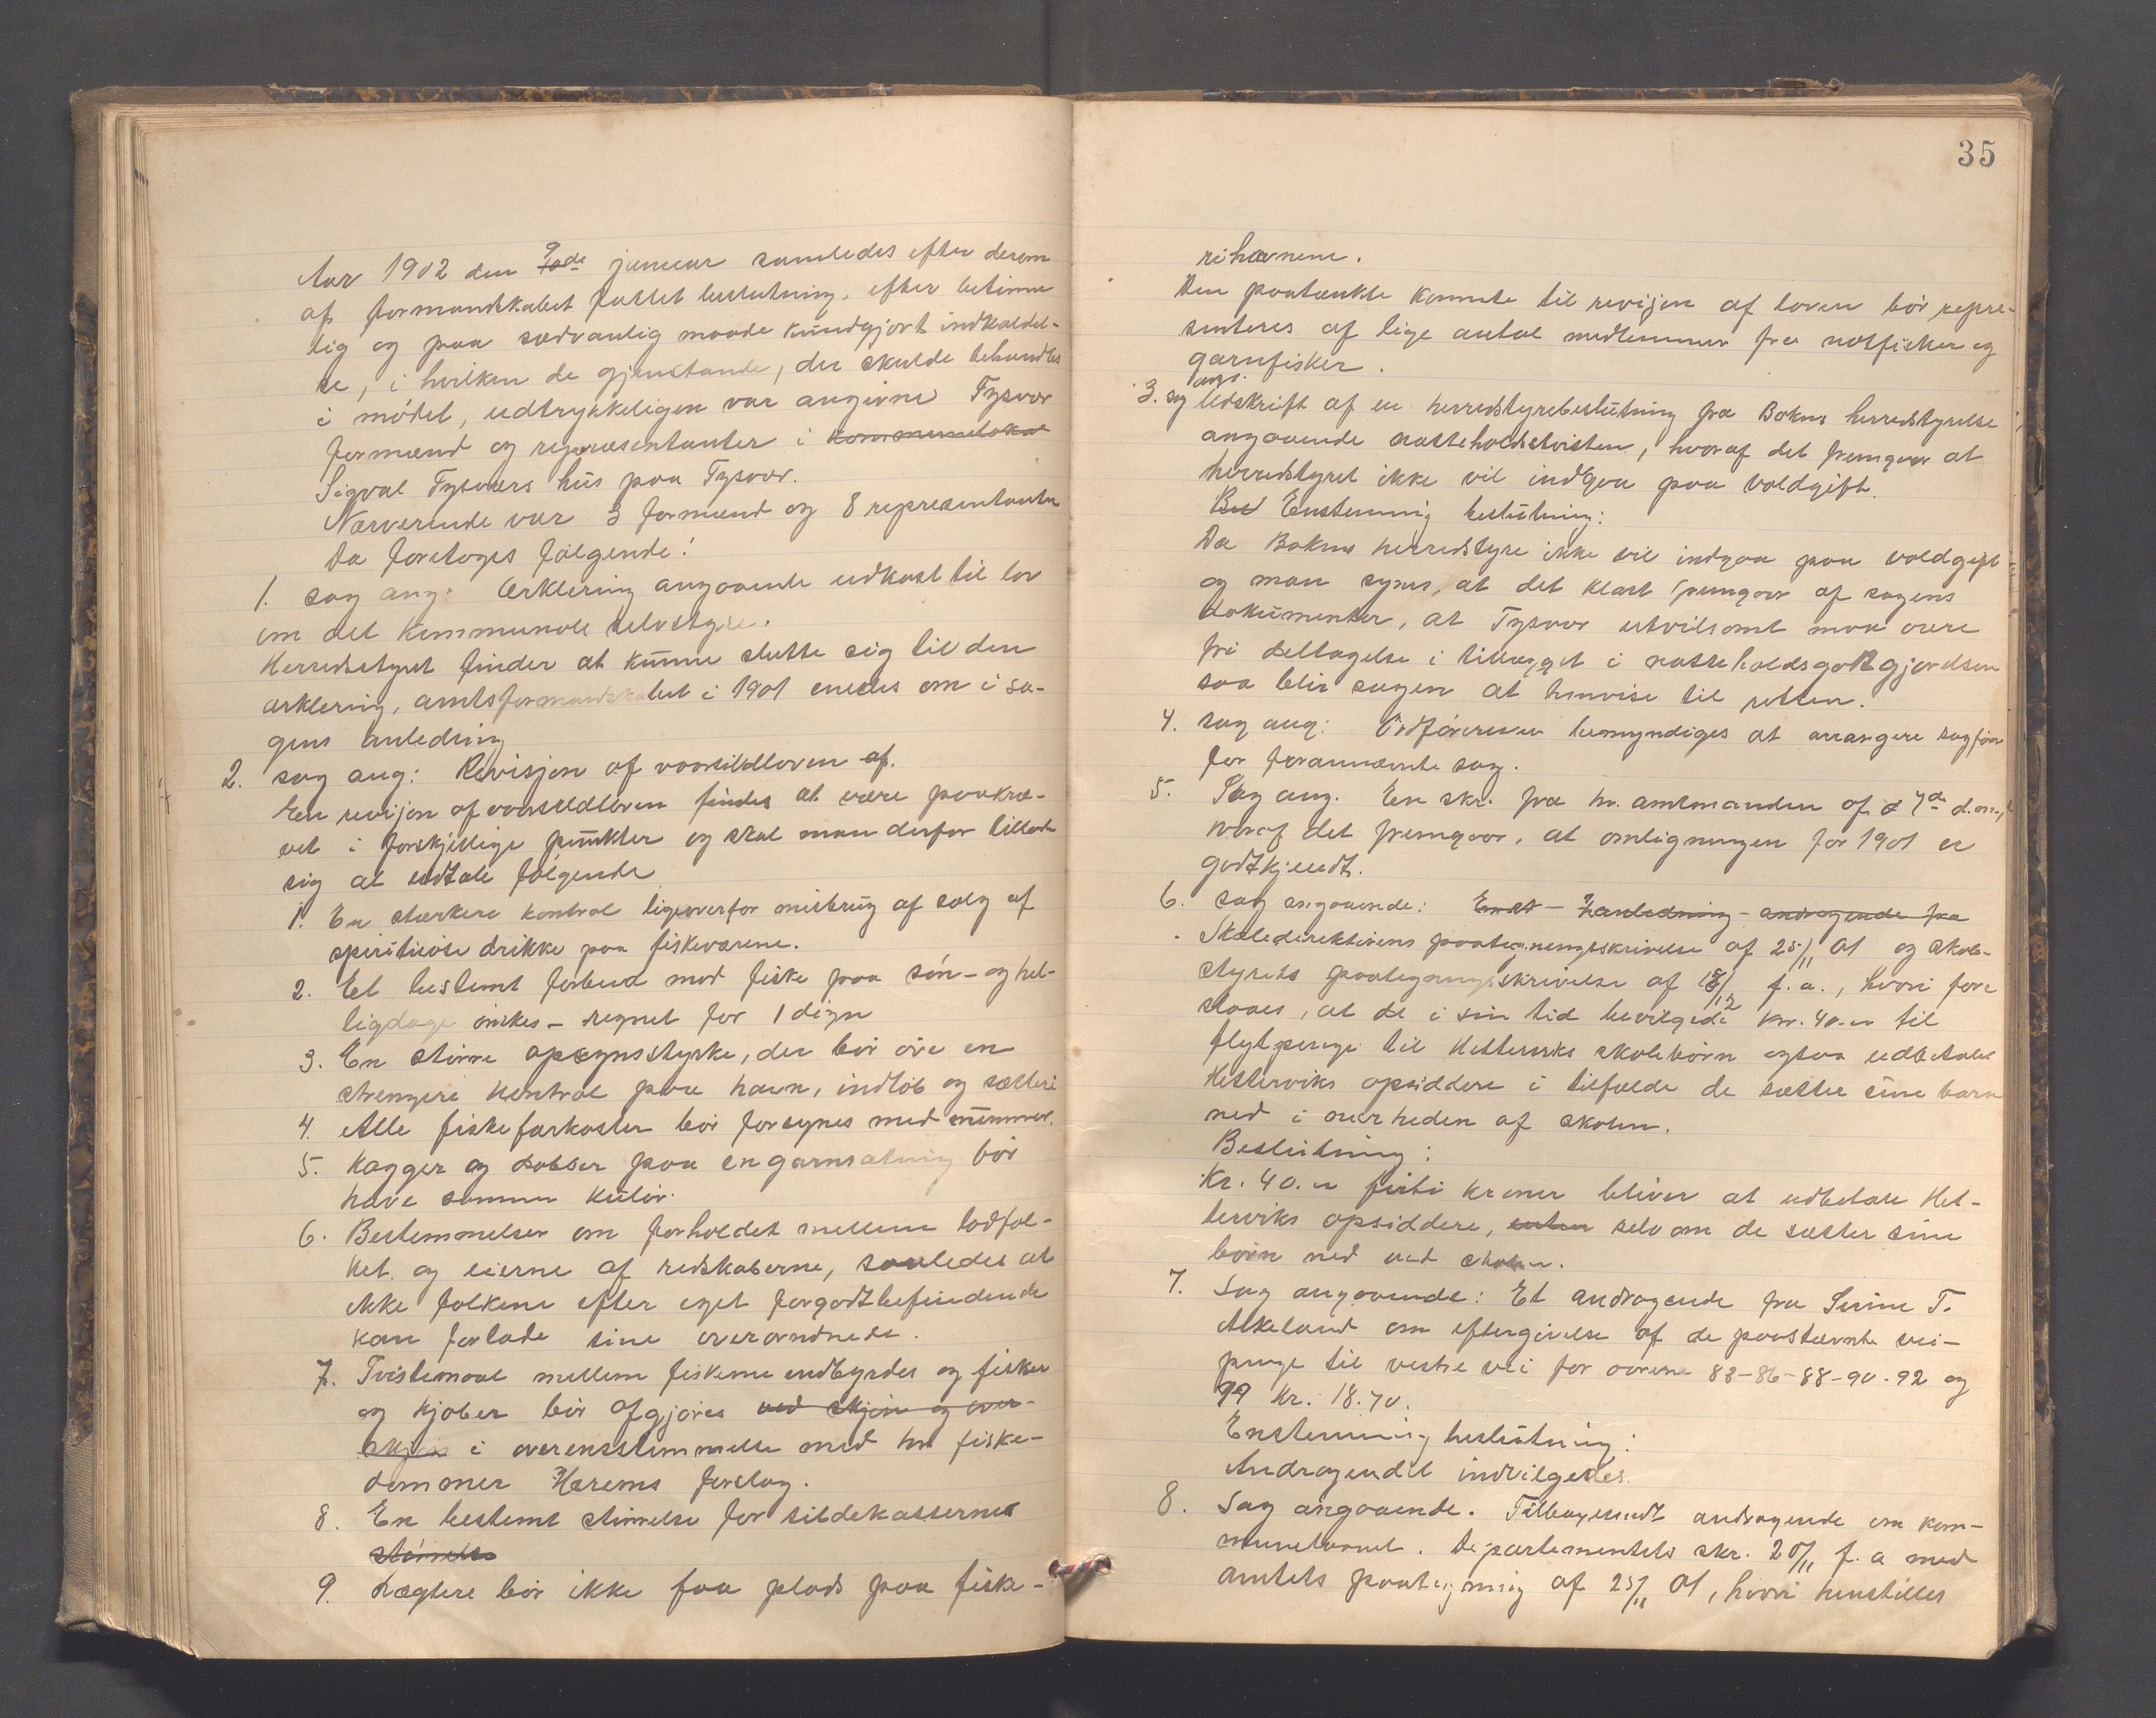 Aar 1902 den 9de januar samledes efter derom
af formandskabet fattet beslutning, efter betime
lig og paa sædvanlig maade kundgjort indkaldel-
se, i hvilken de gjenstande, der skulde behandles
i mødet, udtrykkeligen var angivne Tysvær
formænd og repræsentanter i kommunelokal
Sigval Tysværs hus paa Tysvær.
Nærverende var 3 formænd og 8 representanter
Da foretoges følgende!
1. sag ang: Erklering angaaende udkast til lov
om det kommunale selvstyre.
Herredsstyret finder at kunne slutte sig til den
erklering, amtsformandskabet i 1901 enedes om i sa-
gens anledning
2. sag ang: Revisjon af vaarsildloven af.
En revisjon af vaarsildloven findes at være paakræ-
vet i forskjellige punkter og skal man derfor tillade
sig at udtale følgende
1. En stærkere kontrol ligeoverfor misbrug af salg af
spirituøse drikke paa fiskeværene.
2. Et bestemt forbud mod fiske paa søn- og hel-
ligdage ønskes - regnet for 1 døgn
3. En større opsynsstyrke, der bør øve en
strengere kontrol paa havn, indløb og sætteri
4. Alle fiskefarkoster bør forsynes med nummer.
5. Kagger og dobber paa en garnsætning bør
have samme kulør.
6. Bestemmelser om forholdet mellem lodfol-
ket og eierne af redskaberne, saaledes at
ikke folkene efter eget forgodtbefindende
kan forlade sine overordnede.
7. Tvistemaal mellem fiskerne indbyrdes og fisker
og kjøber bør afgjøres ved skjøn og over-
skjøn i overensstemmelse med hr fiske-
dommer Harems forslag.
8. En bestemt størrelse for sildekasserne
størrelse
9. Lægtere bør ikke faa plads paa fiske-
35
rihavnene.
Den paatænkte komite til revisjon af loven bør repre-
senteres af lige antal medlemmer fra notfisker og
garnfisker.
3. sag ang. Udskrift af en herredstyrebeslutning fra Bokns herredstyrelse
angaaende rasteholdstvisten, hvoraf det fremgaar at
herredstyret ikke vil indgaa paa voldgift.
Bes Enstemmig beslutning:
Da Bokns herredstyre ikke vil indgaa paa voldgift
og man synes, at det klart fremgaar af sagens
dokumenter, at Tysvær utvilsomt maa være
fri deltagelse i tillægget i rasteholdsgodtgjørelsen
saa blir sagen at henvise til retten.
4. sag ang: Ordføreren bemyndiges at arrangere sagfør
for forannævnte sag.
5. Sag ang. En skr. fra hr. amtmanden af d 7de d.m.,
hvoraf det fremgaar, at omligningen for 1901 er
godtkjendt.
6. sag angaaende: Endt - I anledning - andragende fra
Skoledirektørens paategningsskrivelse af 25/11 01 og skole-
styrets paategningsskrivelse af 18/12 f. a., hvori fore
slaaes, at de i sin tid bevilgede kr. 40.00 til
flytpenge til Hetlerviks skolebørn ogsaa udbetales
Hetlerviks opsiddere i tilfælde de sætter sine barn
ned i nærheden af skolen.
Beslutning:
Kr. 40.00 førti kroner bliver at udbetale Het-
lerviks opsiddere, enten selv om de sætter sine
børn ned ved skolen.
7. Sag angaaende: Et andragende fra Serine T.
Askeland om eftergivelse af de paastævnte vei-
penge til vestre vei for aarene 83-86-88-90-92 og
99 kr. 18.70.
Enstemmig beslutning:
Andragendet indvilgedes.
8. Sag angaaende. Tilbagesendt andragende om kom-
munelaanet. Departementets skr. 20/11 f. a med
amtets paategning af 25/11 01, hvori henstilles